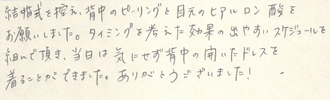 結婚式を控え、背中のピーリングと目元のヒアルロン酸を
お願いしました。タイミングを考えた効果の出やすいスケジュールを
組んで頂き、当日は気にせず背中の開いたドレスを
着ることができました。ありがとうございました!